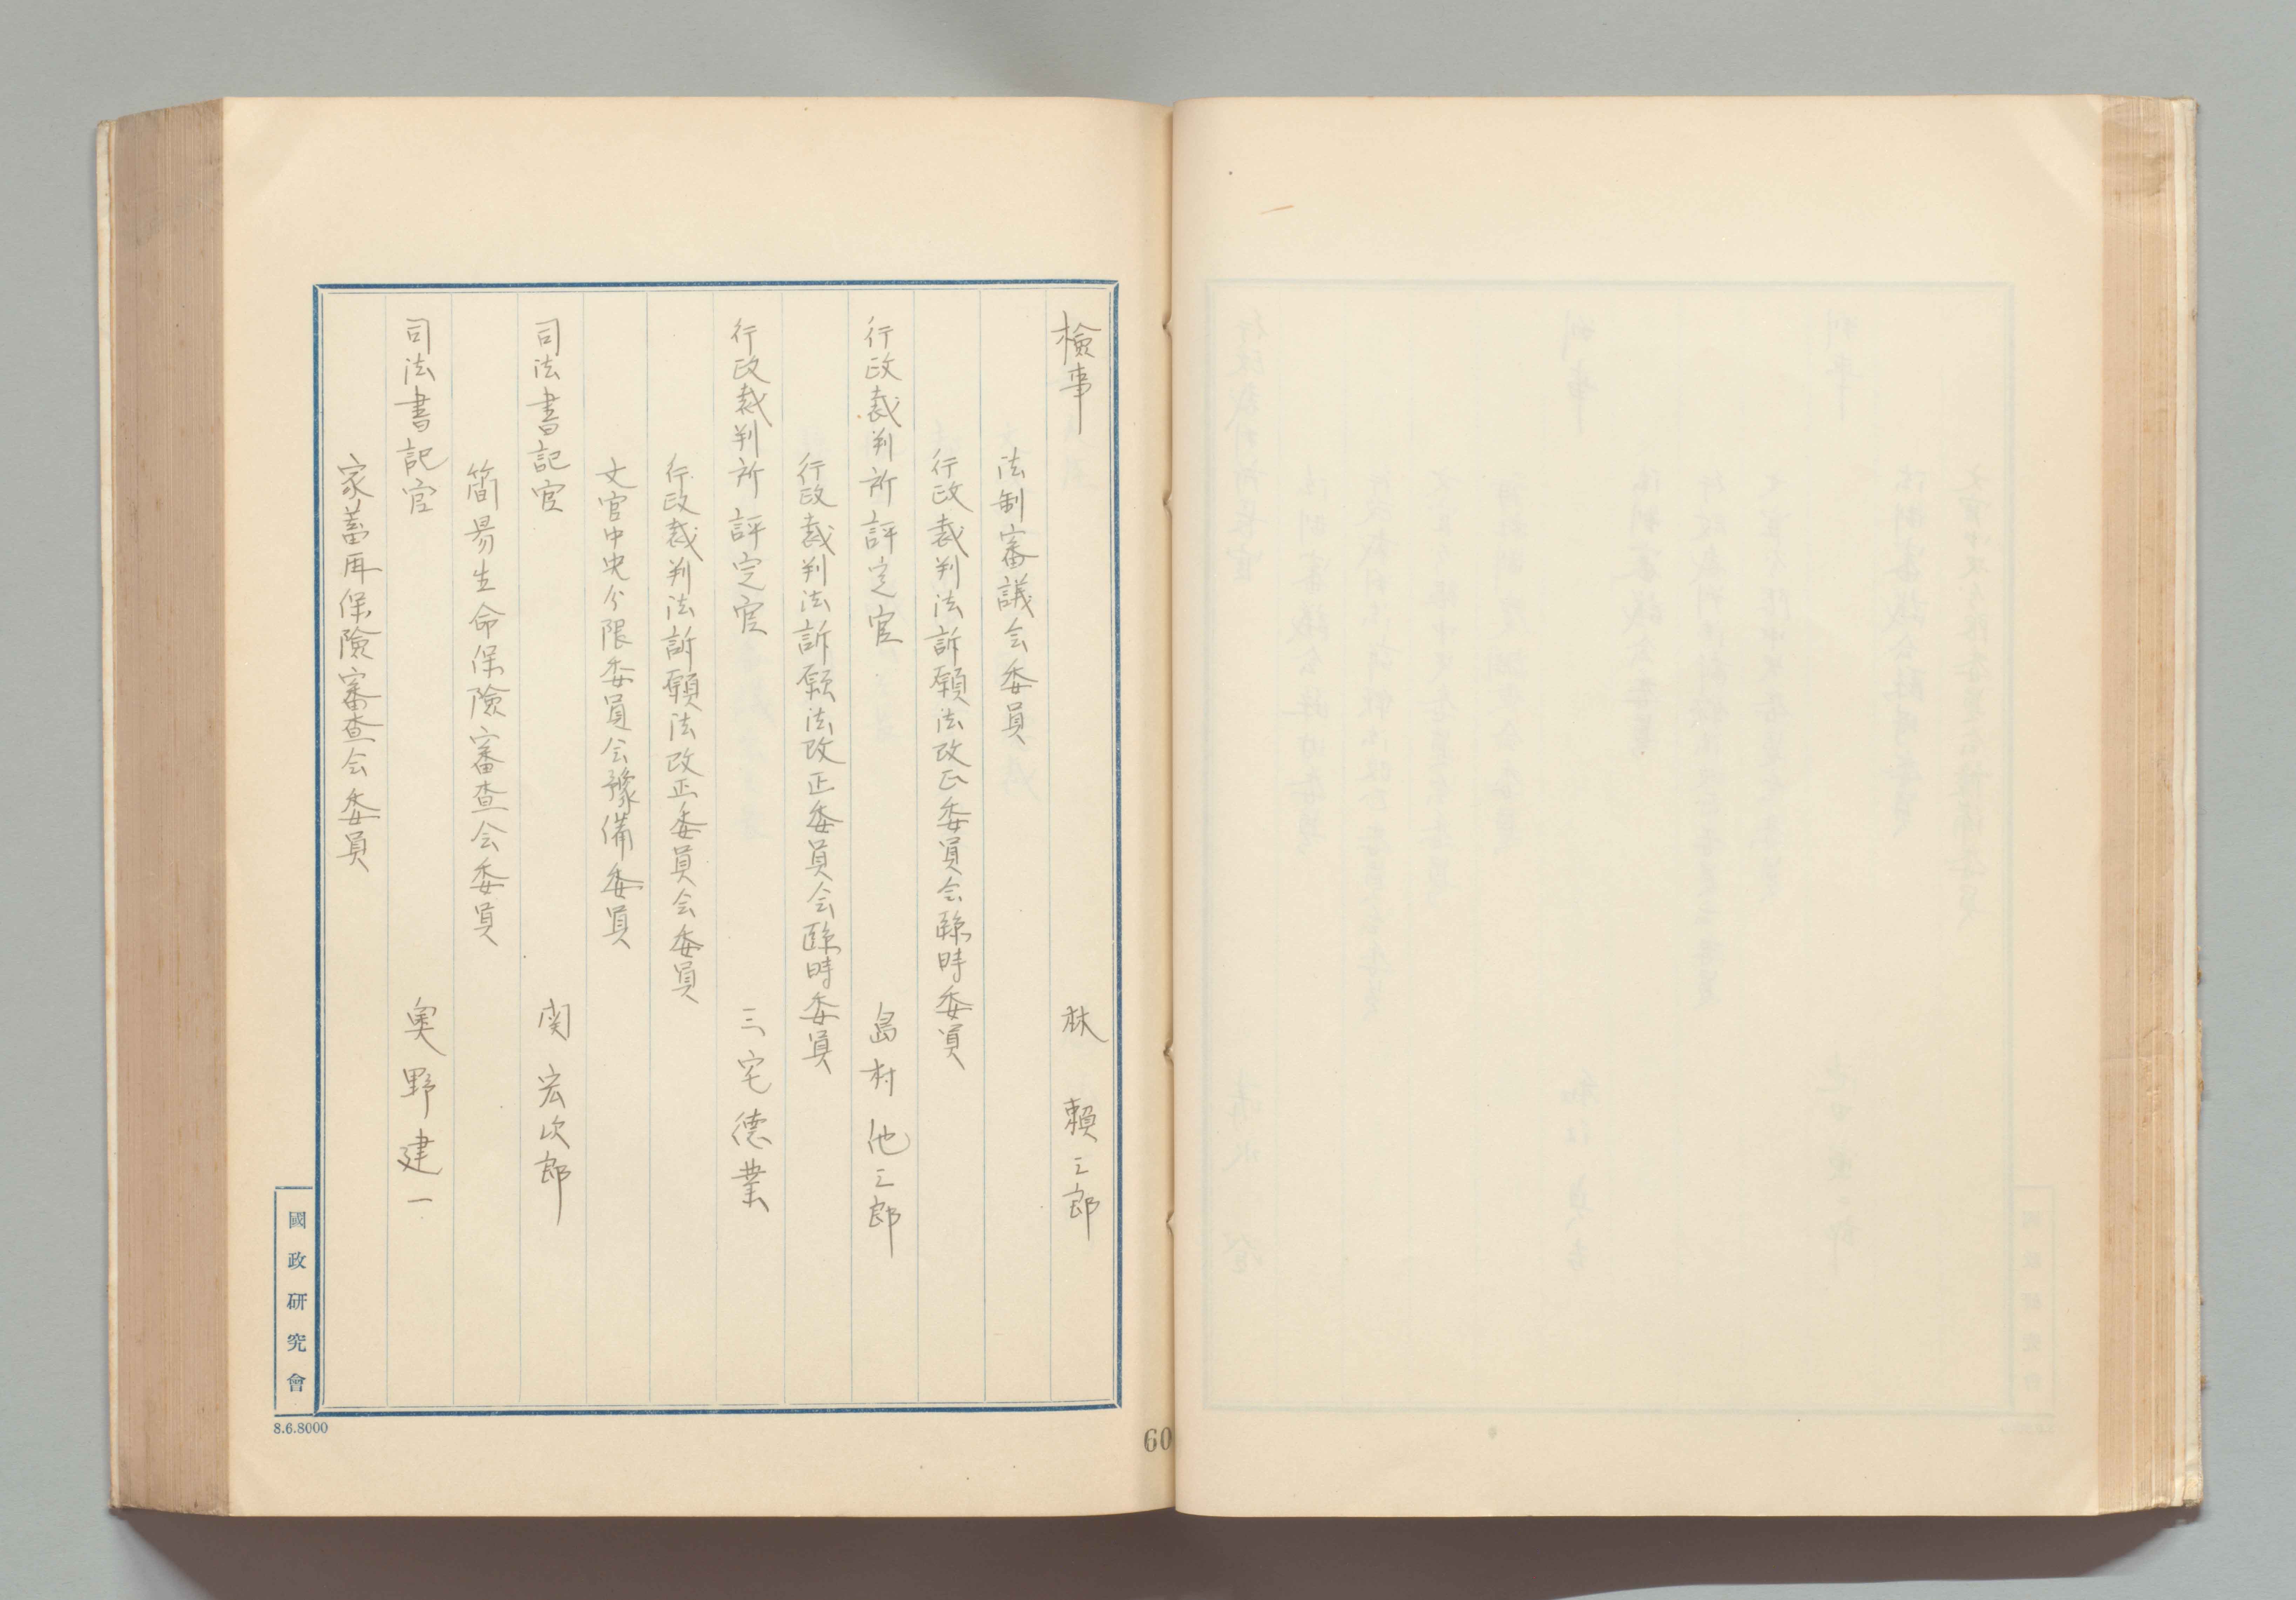 檢事　林　賴三郎
法制審議会委員
行政裁判法訴願法改正委員会臨時委員
行政裁判所評定官　島村他三郎
行政裁判法訴願法改正委員会臨時委員
行政裁判所評定官　三宅德業
行政裁判法訴願法改正委員会委員
文官中央分限委員会豫備委員
司法書記官　関宏次郎
簡易生命保險審查会委員
司法書記官　奥野建一
家畜再保險審查会委員
國政研究會
8.6.8000
60